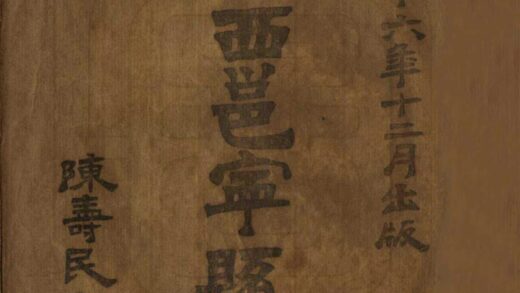 六年十二月出版
西邕寧縣
陳壽民